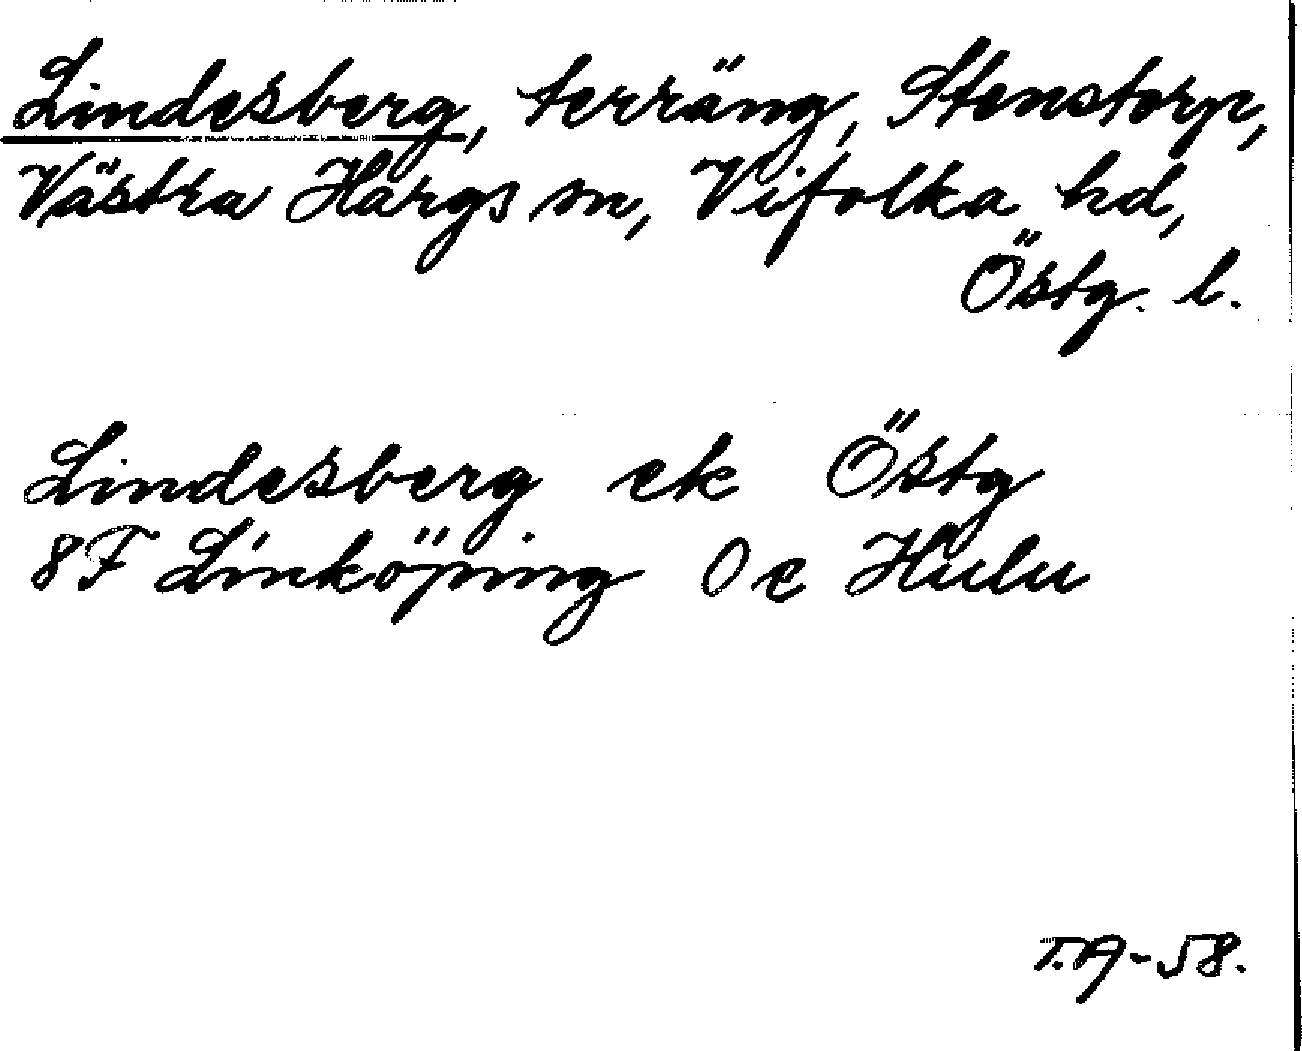 Lindesberg, terräng, Stenstorp,
Västra Hargs sn, Vifolka hd,
Östg. l.
Lindesberg ek Östg
8F Linköping 0 e Hulu
T.A-58.